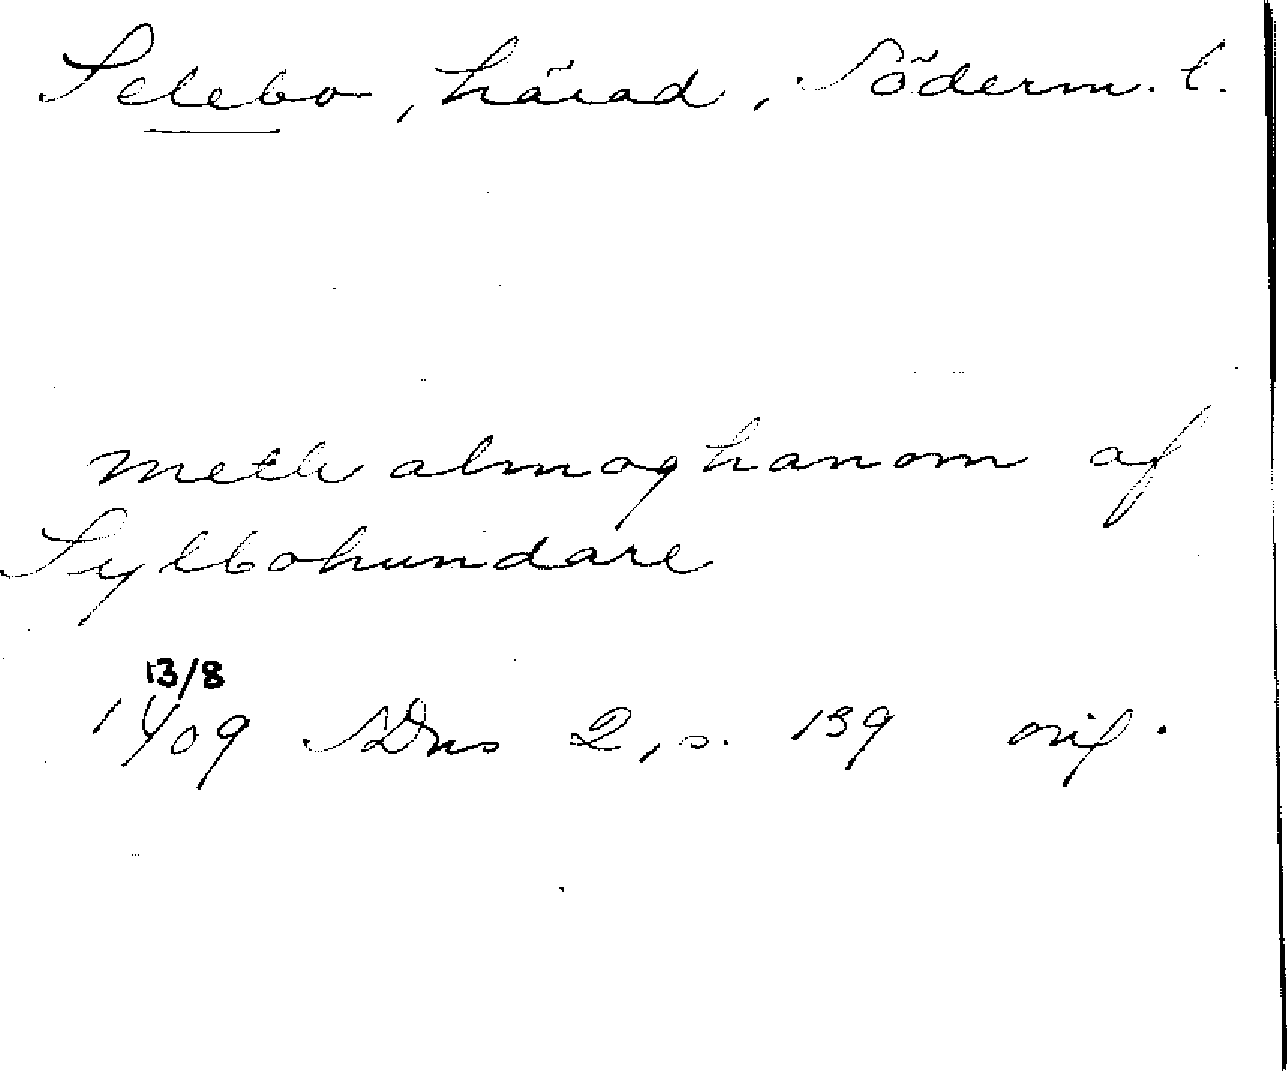 Selebo, härad, Söderm. l.
meth almoghanom af
Sylbohundare
13/8
1409 SDns 2, s. 139 orig.